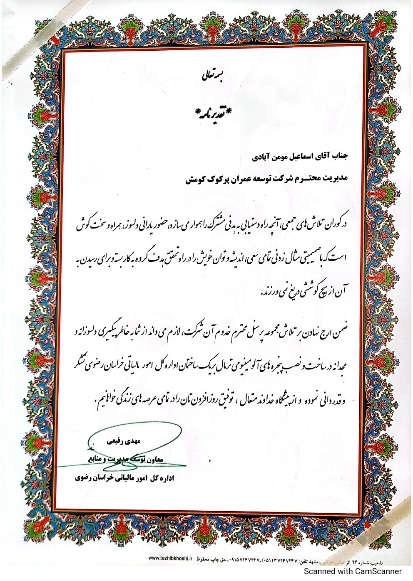 بسمه تعالی
*تقدیرنامه*
جناب آقای اسماعیل مومن آبادی
مدیریت محترم شرکت توسعه عمران پرکوک کومش
در کوران تلاش های جمعی، آنچه راه دستیابی به هدفی مشترک را هموار می سازد، حضور یارانی دلسوز، همراه و سخت کوش
است که با صمیمیتی مثال زدنی تمامی سعی، اندیشه و توان خویش را در راه تحقق هدف گروه به کار بسته و برای رسیدن به
آن از هیچ کوششی دریغ نمی ورزند.
ضمن ارج نهادن بر تلاش مجموعه پرسنل محترم خدوم آن شرکت، لازم می داند از شما به خاطر پیگیری دلسوزانه و
مجدانه در ساخت و نصب پنجره های آلومینیومی ترمال بریک ساختمان اداره کل امور مالیاتی خراسان رضوی تشکر
و قدردانی نموده و از پیشگاه خداوند متعال، توفیق روزافزون تان را در تمامی عرصه های زندگی خواهانیم.
مهدی رفیعی
معاون توسعه مدیریت و منابع
اداره کل امور مالیاتی خراسان رضوی
حق چاپ محفوظ
Scanned with CamScanner